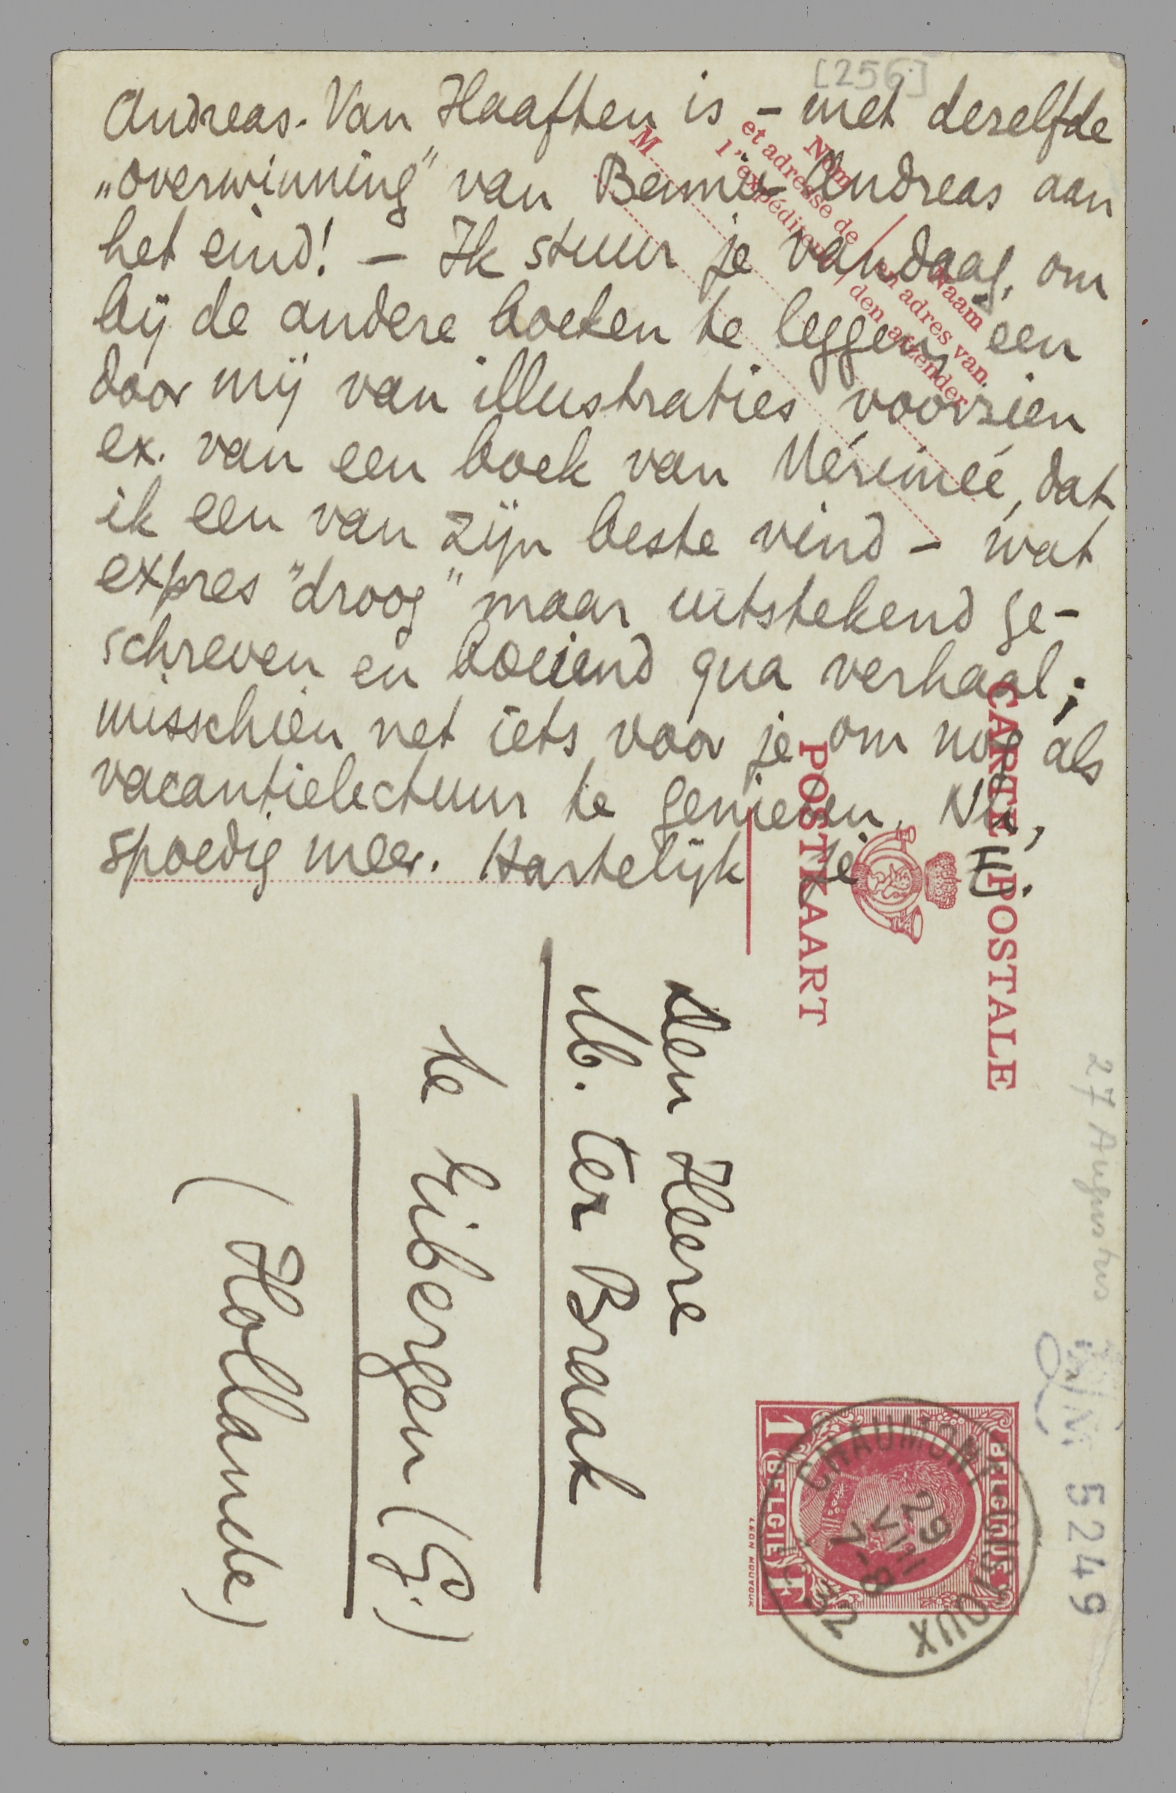 [256]
Andreas-Van Haaften is – met dezelfde
„overwinning" van Benno-Andreas aan
het eind! – Ik stuur je vandaag, om
bij de andere boeken te leggen, een
door mij van illustraties voorzien
ex. van een boek van Mérimée, dat
ik een van zijn beste vind – wat
expres "droog" maar uitstekend ge-
schreven en boeiend qua verhaal;
misschien net iets voor je om nog als
vacantielectuur te genieten. Nu,
spoedig meer. Hartelijk je E
M
Nom
et adresse de
l'expéditeur
Naam
en adres van
den afzender
CARTE POSTALE
POSTKAART
Den Heere
M. ter Braak
te Eibergen (G.)
(Hollande)
27 Augustus
5249
BELGIQUE
1 BELGIË 1
CHAUMONT-GISTOUX
29
VIII
7-8
32